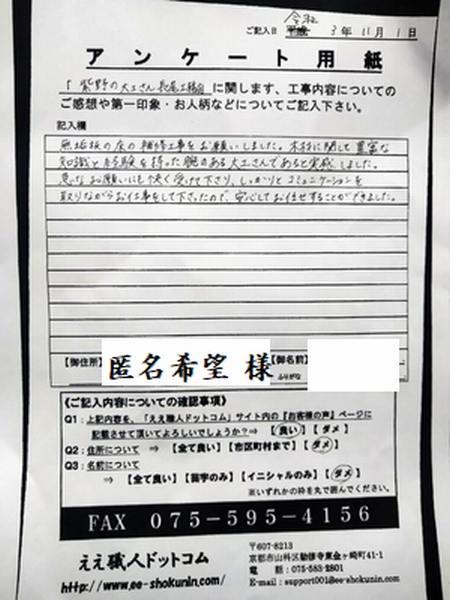 令和
ご記入日 平成 3年 11月 1日
アンケート用紙
「紫野の大工さん 長尾工務店」に関します、工事内容についての
ご感想や第一印象・お人柄などについてご記入下さい。
記入欄
無垢板の床の補修工事をお願いしました。木材に関して豊富な
知識と経験を持った腕のある大工さんであると実感しました。
急なお願いにも快く受けて下さり、しっかりとコミュニケーションを
取りながらお仕事をして下さったので、安心してお任せすることができました。
【御住所】 匿名希望 様 【御名前】
ふりがな
《ご記入内容についての確認事項》
Q1:上記内容を、「ええ職人ドットコム」サイト内の『お客様の声』ページに
記載させて頂いてよろしいでしょうか?⇒ 【良い】【ダメ】
Q2:住所について ⇒ 【全て良い】【市区町村まで】【ダメ】
Q3:名前について
⇒ 【全て良い】【苗字のみ】【イニシャルのみ】【ダメ】
※いずれかの枠を丸で囲んでください。
FAX 075-595-4156
ええ職人ドットコム
http://www.ee-shokunin.com/
〒607-8213
京都市山科区勧修寺東金ヶ崎町41-1
電 話:075-583-2801
E-mail:support001@ee-shokunin.com